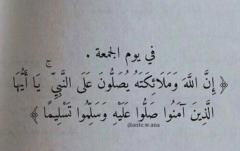 في يوم الجمعة .
﴿ إِنَّ اللَّهَ وَمَلَائِكَتَهُ يُصَلُّونَ عَلَى النَّبِيِّ ۚ يَا أَيُّهَا
الَّذِينَ آمَنُوا صَلُّوا عَلَيْهِ وَسَلِّمُوا تَسْلِيمًا ﴾